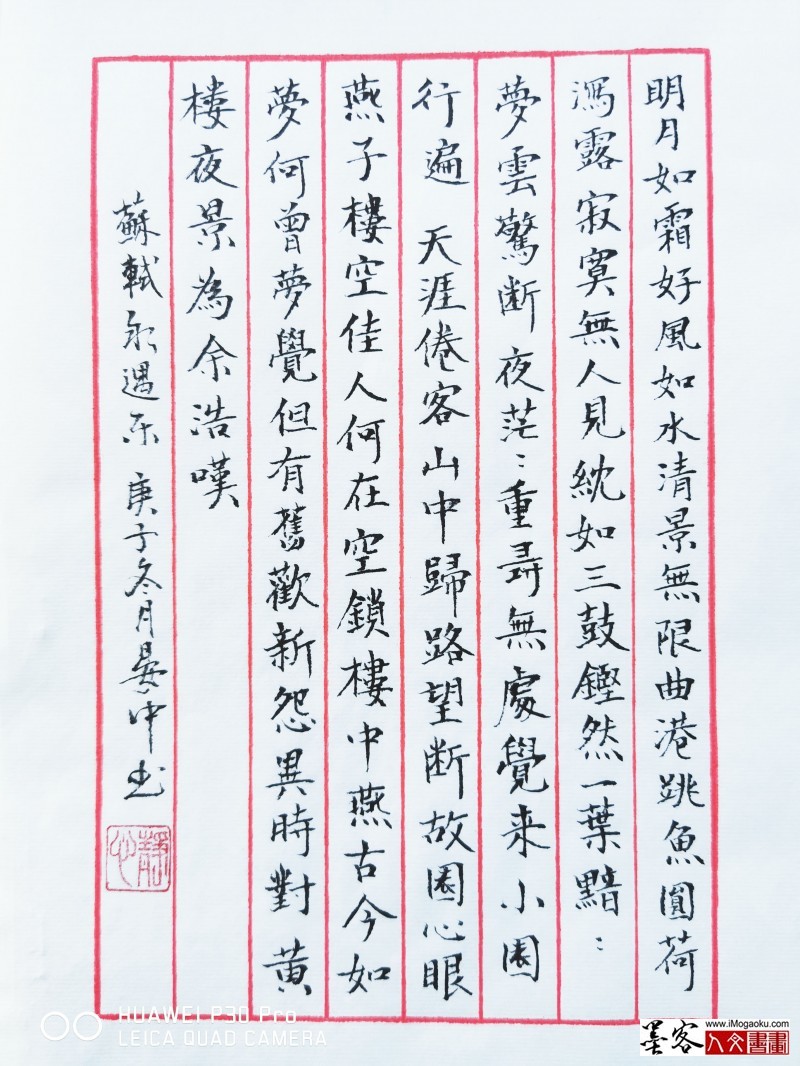 明月如霜好風如水清景無限曲港跳魚圓荷
瀉露寂寞無人見紞如三鼓鏗然一葉黯︰
夢雲驚断夜茫︰重尋無處覺来小園
行遍 天涯倦客山中歸路望断故園心眼
燕子樓空佳人何在空鎖樓中燕古今如
夢何曾夢覺但有舊歡新怨異時對黄
樓夜景為余浩嘆
蘇軾永遇乐 庚子冬月晏中书
靜心
HUAWEI P30 Pro
LEICA QUAD CAMERA
墨客
www.iMogaoku.com
人文書畫